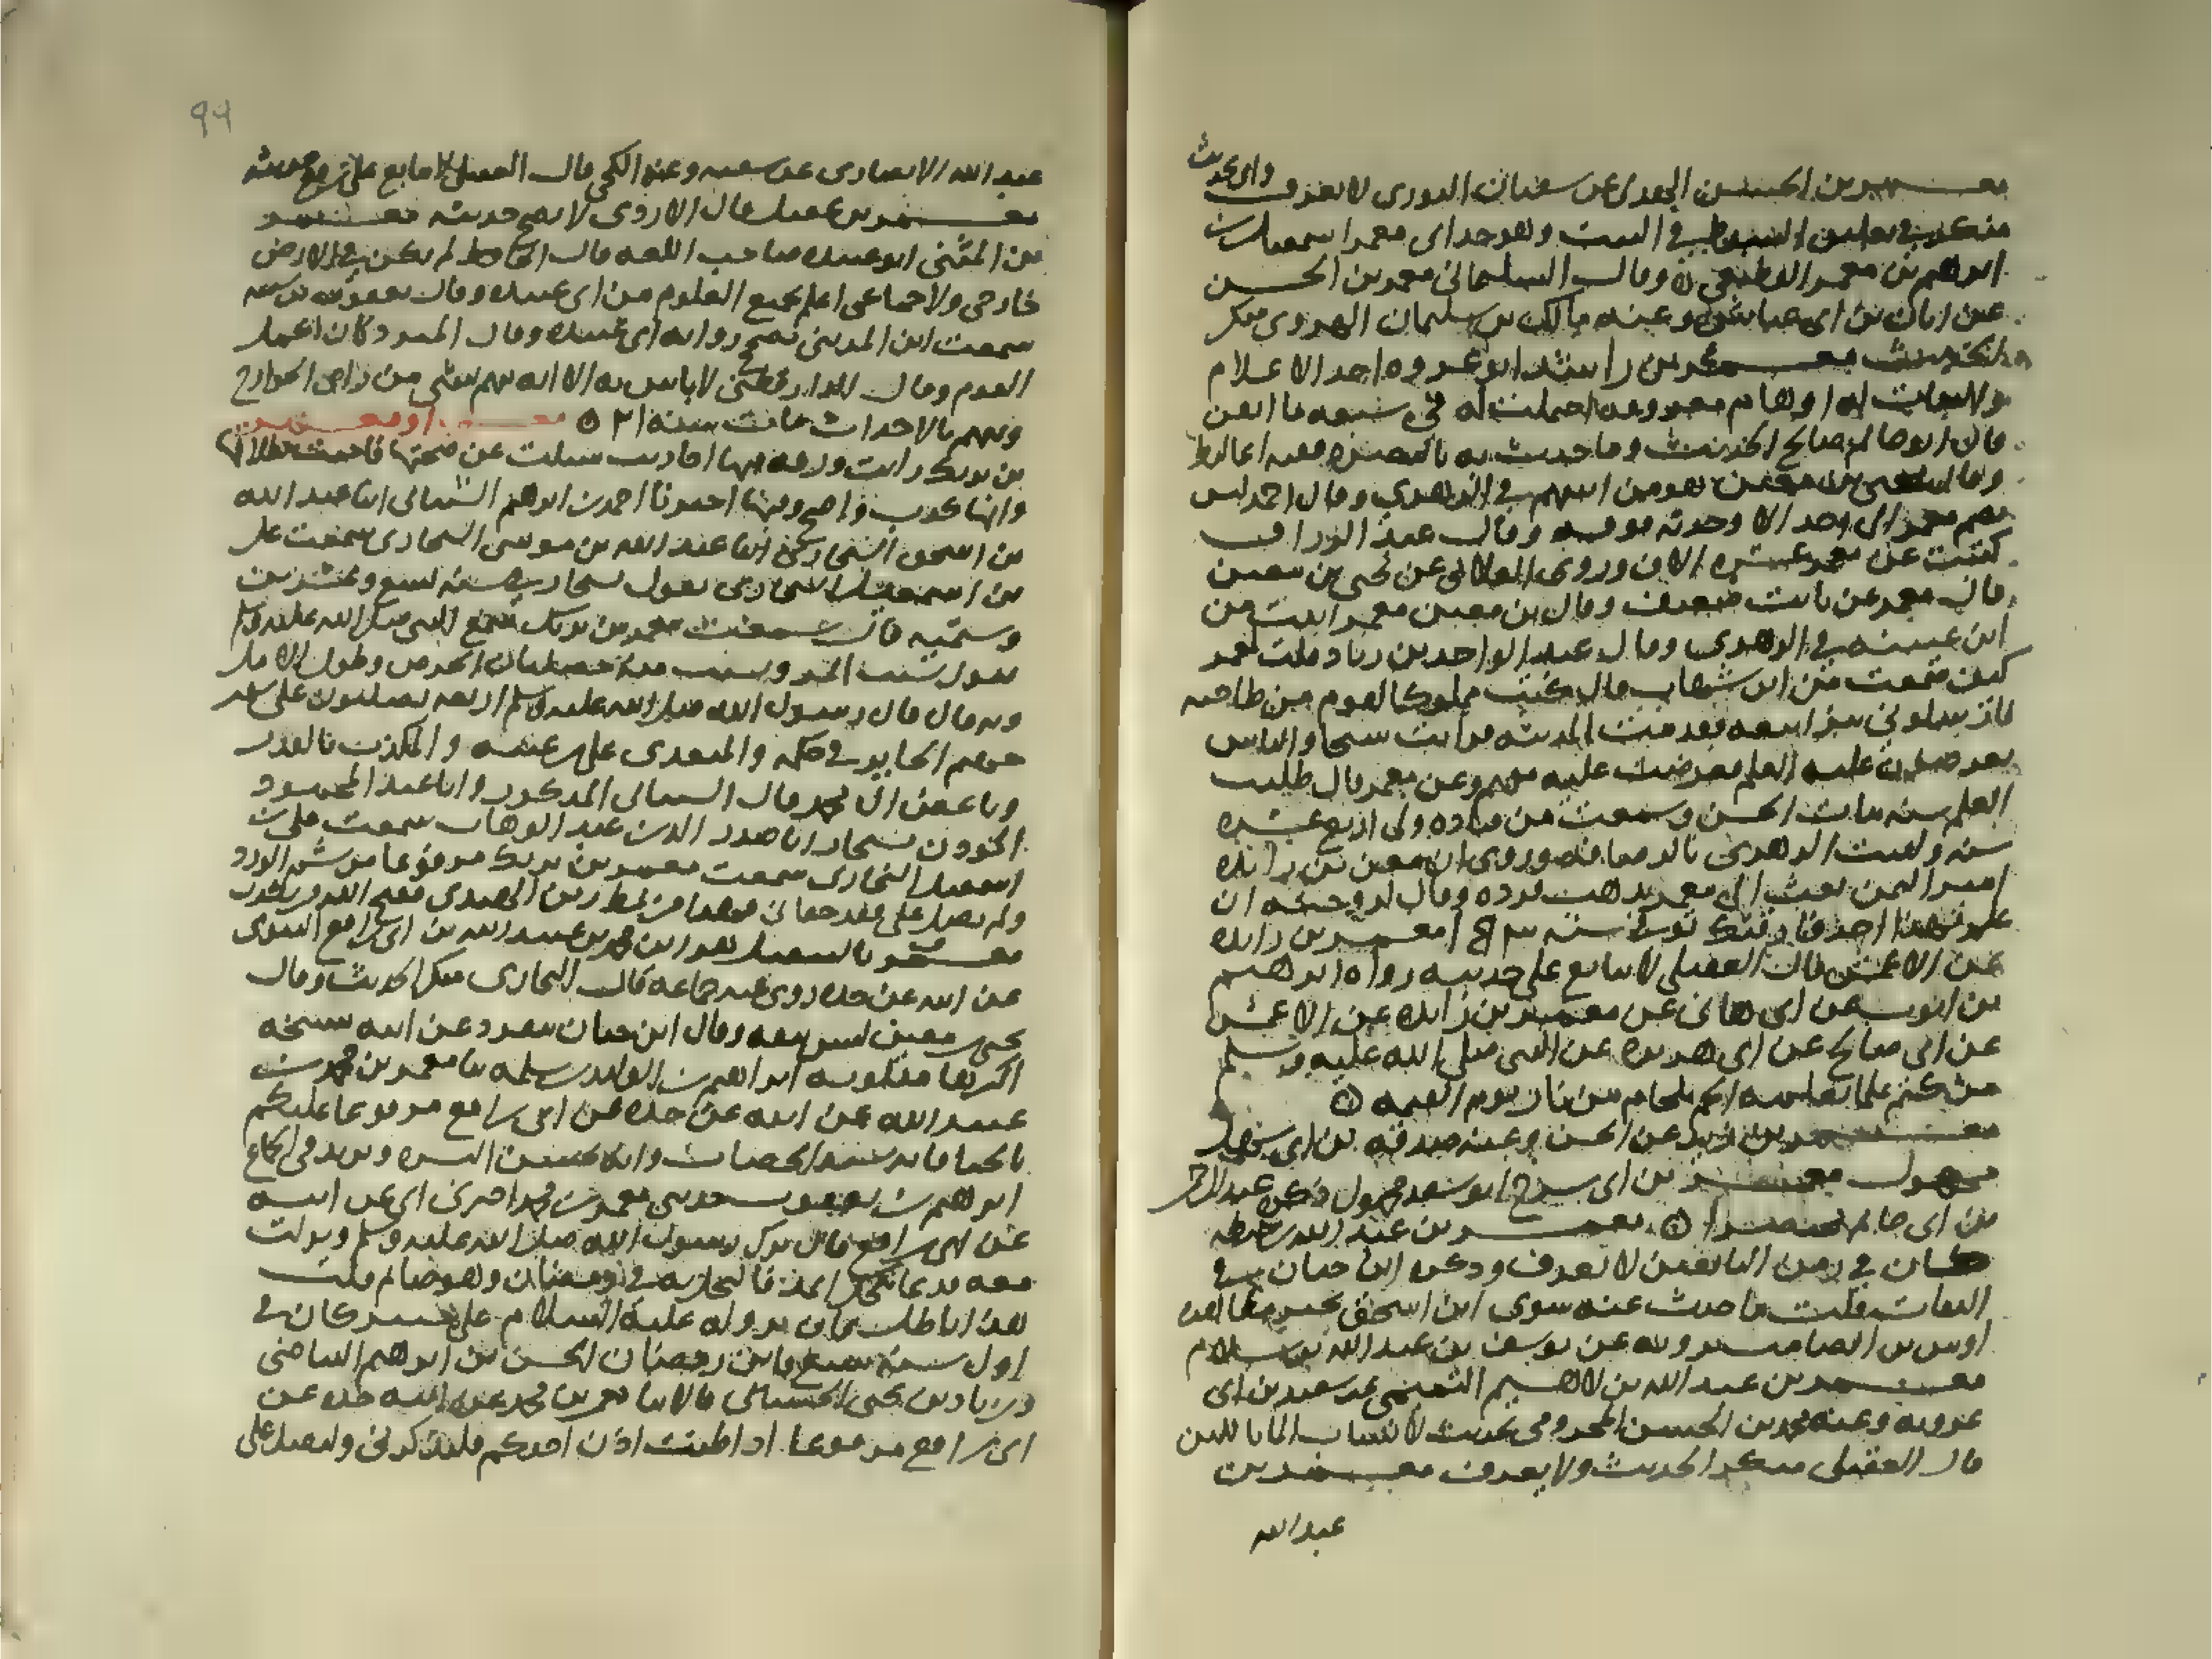 معمر بن الحسن الهذلي عن سفيان الثوري لا يعرف وأتى بحديث
منكر في تعليق السوط في البيت وهو جد أبي معمر اسمعيل بن
ابرهيم بن معمر القطيعي ۞ وقال السليماني معمر بن الحسن
عن ابان بن ابي عياش وعنه مالك بن سليمان الهروي منكر
الحديث معمر بن راشد ابو عروه احد الاعلام
الثقات له اوهام معروفه احتملت له في سعه ما اتقن
قال ابو حاتم صالح الحديث وما حدث به بالبصره ففيه اغاليط
وقال يحيى بن معين هو من اثبتهم في الزهري وقال احمد ليس
تضم معمر الى احد الا وجدته فوقه وقال عبد الرزاق
كتبت عن معمر عشره الاف وروى الغلابي عن يحيى بن معين
قال معمر عن ثابت ضعيف وقال بن معين معمر اثبت من
ابن عيينه في الزهري وقال عبد الواحد بن زياد قلت لمعمر
كيف سمعت من ابن شهاب قال كنت مملوكا لقوم من طاحيه
فارسلوني ببز ابيعه فقدمت المدينه فرايت شيخا والناس
يعرضون عليه العلم فعرضت عليه معهم وعن معمر قال طلبت
العلم سنه مات الحسن وسمعت من قتاده ولي اربع عشره
سنه ولقيت الزهري بالرصافه وروى ان معن بن زائده
امير اليمن بعث الى معمر بذهب فرده وقال لزوجته ان
علم بهذا احد فارقتك توفي سنه ١٥٣ معمر بن زائده
عن الاعمش قال العقيلي لا يتابع على حديثه رواه ابرهيم
بن ايوب عن ابي هاني عن معمر بن زائده عن الاعمش
عن ابي صالح عن ابي هريره عن النبي صلى الله عليه وسلم
من كتم علما يعلمه الجم بلجام من نار يوم القيمه ۞
معمر بن زيد عن الحسن وعنه صدقه بن ابي سهل
مجهول معمر بن ابي سرح ابو سعد مجهول ذكره عبد الرحمن
بن ابي حاتم مختصرا ۞ معمر بن عبد الله بن حنظله
كان في زمن التابعين لا يعرف وذكره ابن حبان في
الثقات قلت ما حدث عنه سوى ابن اسحق بخبر مظاهره
اوس بن الصامت يرويه عن يوسف بن عبد الله بن سلام
معمر بن عبد الله بن الاهتم التميمي عن سعيد بن ابي
عروبه وعنه محمد بن الحسن المخزومي بحديث لا تنسا البانا للبن
قال العقيلي منكر الحديث ولا يعرف معمر بن
عبد الله
عبد الله الانصاري عن شعبه وعنه الكجي قال العقيلي لا يتابع على رفع حديثه
معمر بن عقيل قال الازدي لا يصح حديثه معمر
بن المثنى ابو عبيده صاحب اللغه قال الجاحظ لم يكن في الارض
خارجي ولا جماعي اعلم بجميع العلوم من ابي عبيده وقال يعقوب بن شيبه
سمعت ابن المديني يصحح روايه ابي عبيده وقال المبرد كان اعلم
القوم وقال الدارقطني لا باس به الا انه يتهم بشي من راي الخوارج
ويتهم بالاحداث مات سنة ٢١٠ ۞ معمر او معمر
بن بريك رايت ورقه فيها احاديث سئلت عن صحتها فاجبت ببطلانها
وانها كذب واضح وفيها اخبرنا احمد بن ابرهيم الشيباني انا عبد الله
بن اسحق السنجاري انا عبد الله بن موسى السنجاري سمعت علي
بن اسمعيل السنجاري يقول بسنجار في سنه تسع وعشرين
وستميه قال سمعت معمر بن بريك سمع النبي صلى الله عليه وسلم
يقول يشيب المرء ويشب منه خصلتان الحرص وطول الامل
وبه قال قال رسول الله صلى الله عليه وسلم اربعه يصلبون على شفير
جهنم الجاير في حكمه والمتعدي على رعيته والمكذب بالقدر
وباغض ال محمد قال الشيباني المذكور وانا عبد المحمود
المؤذن بسنجار انا صدر الدين عبد الوهاب سمعت علي بن
اسمعيل السنجاري سمعت معمر بن بريك مرفوعا من شم الورد
ولم يصل علي فقد جفاني فهذا من نمط رتن الهندي فقبح الله من يكذب
معمر بالتثقيل هو ابن محمد بن عبيد الله بن ابي رافع النبوي
عن ابيه عن جده روى عنه جماعه قال البخاري منكر الحديث وقال
يحيى بن معين ليس بثقه وقال ابن حبان ينفرد عن ابيه بنسخه
اكثرها مقلوبه ابراهيم بن الوليد بن سلمه ثنا معمر بن محمد بن
عبيد الله عن ابيه عن جده عن ابي رافع مرفوعا عليكم
بالحنا فانه سيد الخضاب وانه يحسن البشره ويزيد في الجماع
ابرهيم بن يعقوب حدثني معمر بن محمد اخبرني ابي عن ابيه
عن ابي رافع قال نزل رسول الله صلى الله عليه وسلم ونزلت
معه فدعا بكحل اثمد فاكتحل به في رمضان وهو صائم قلت
هذا باطل فان نزوله عليه السلام على خيبر كان في
اول سنه سبع ما بين رمضان الحسن بن ابرهيم البياضي
وزياد بن يحيى الحساني قالا ثنا معمر بن محمد عن ابيه عن جده عن
ابي رافع مرفوعا اذا طنت اذن احدكم فليذكرني وليصل علي